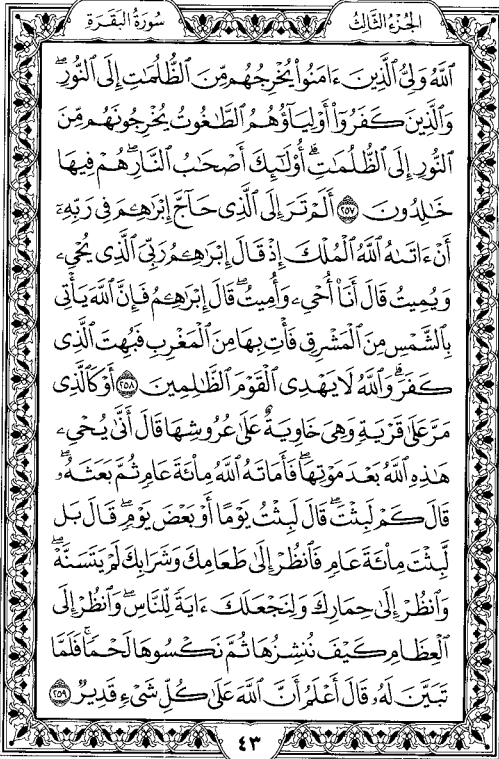 الجزء الثالث
سورة البقرة
ٱللَّهُ وَلِيُّ ٱلَّذِينَ ءَامَنُوا۟ يُخْرِجُهُم مِّنَ ٱلظُّلُمَٰتِ إِلَى ٱلنُّورِۖ
وَٱلَّذِينَ كَفَرُوٓا۟ أَوْلِيَآؤُهُمُ ٱلطَّٰغُوتُ يُخْرِجُونَهُم مِّنَ
ٱلنُّورِ إِلَى ٱلظُّلُمَٰتِۗ أُو۟لَٰٓئِكَ أَصْحَٰبُ ٱلنَّارِۖ هُمْ فِيهَا
خَٰلِدُونَ ٢٥٧ أَلَمْ تَرَ إِلَى ٱلَّذِى حَآجَّ إِبْرَٰهِۦمَ فِى رَبِّهِۦٓ
أَنْ ءَاتَىٰهُ ٱللَّهُ ٱلْمُلْكَ إِذْ قَالَ إِبْرَٰهِۦمُ رَبِّىَ ٱلَّذِى يُحْىِۦ
وَيُمِيتُ قَالَ أَنَا۠ أُحْىِۦ وَأُمِيتُۖ قَالَ إِبْرَٰهِۦمُ فَإِنَّ ٱللَّهَ يَأْتِى
بِٱلشَّمْسِ مِنَ ٱلْمَشْرِقِ فَأْتِ بِهَا مِنَ ٱلْمَغْرِبِ فَبُهِتَ ٱلَّذِى
كَفَرَۗ وَٱللَّهُ لَا يَهْدِى ٱلْقَوْمَ ٱلظَّٰلِمِينَ ٢٥٨ أَوْ كَٱلَّذِى
مَرَّ عَلَىٰ قَرْيَةٍ وَهِىَ خَاوِيَةٌ عَلَىٰ عُرُوشِهَا قَالَ أَنَّىٰ يُحْىِۦ
هَٰذِهِ ٱللَّهُ بَعْدَ مَوْتِهَاۖ فَأَمَاتَهُ ٱللَّهُ مِا۟ئَةَ عَامٍ ثُمَّ بَعَثَهُۥۖ
قَالَ كَمْ لَبِثْتَۖ قَالَ لَبِثْتُ يَوْمًا أَوْ بَعْضَ يَوْمٍۖ قَالَ بَل
لَّبِثْتَ مِا۟ئَةَ عَامٍ فَٱنظُرْ إِلَىٰ طَعَامِكَ وَشَرَابِكَ لَمْ يَتَسَنَّهْۖ
وَٱنظُرْ إِلَىٰ حِمَارِكَ وَلِنَجْعَلَكَ ءَايَةً لِّلنَّاسِۖ وَٱنظُرْ إِلَى
ٱلْعِظَامِ كَيْفَ نُنشِزُهَا ثُمَّ نَكْسُوهَا لَحْمًاۚ فَلَمَّا
تَبَيَّنَ لَهُۥ قَالَ أَعْلَمُ أَنَّ ٱللَّهَ عَلَىٰ كُلِّ شَىْءٍ قَدِيرٌ ٢٥٩
٤٣